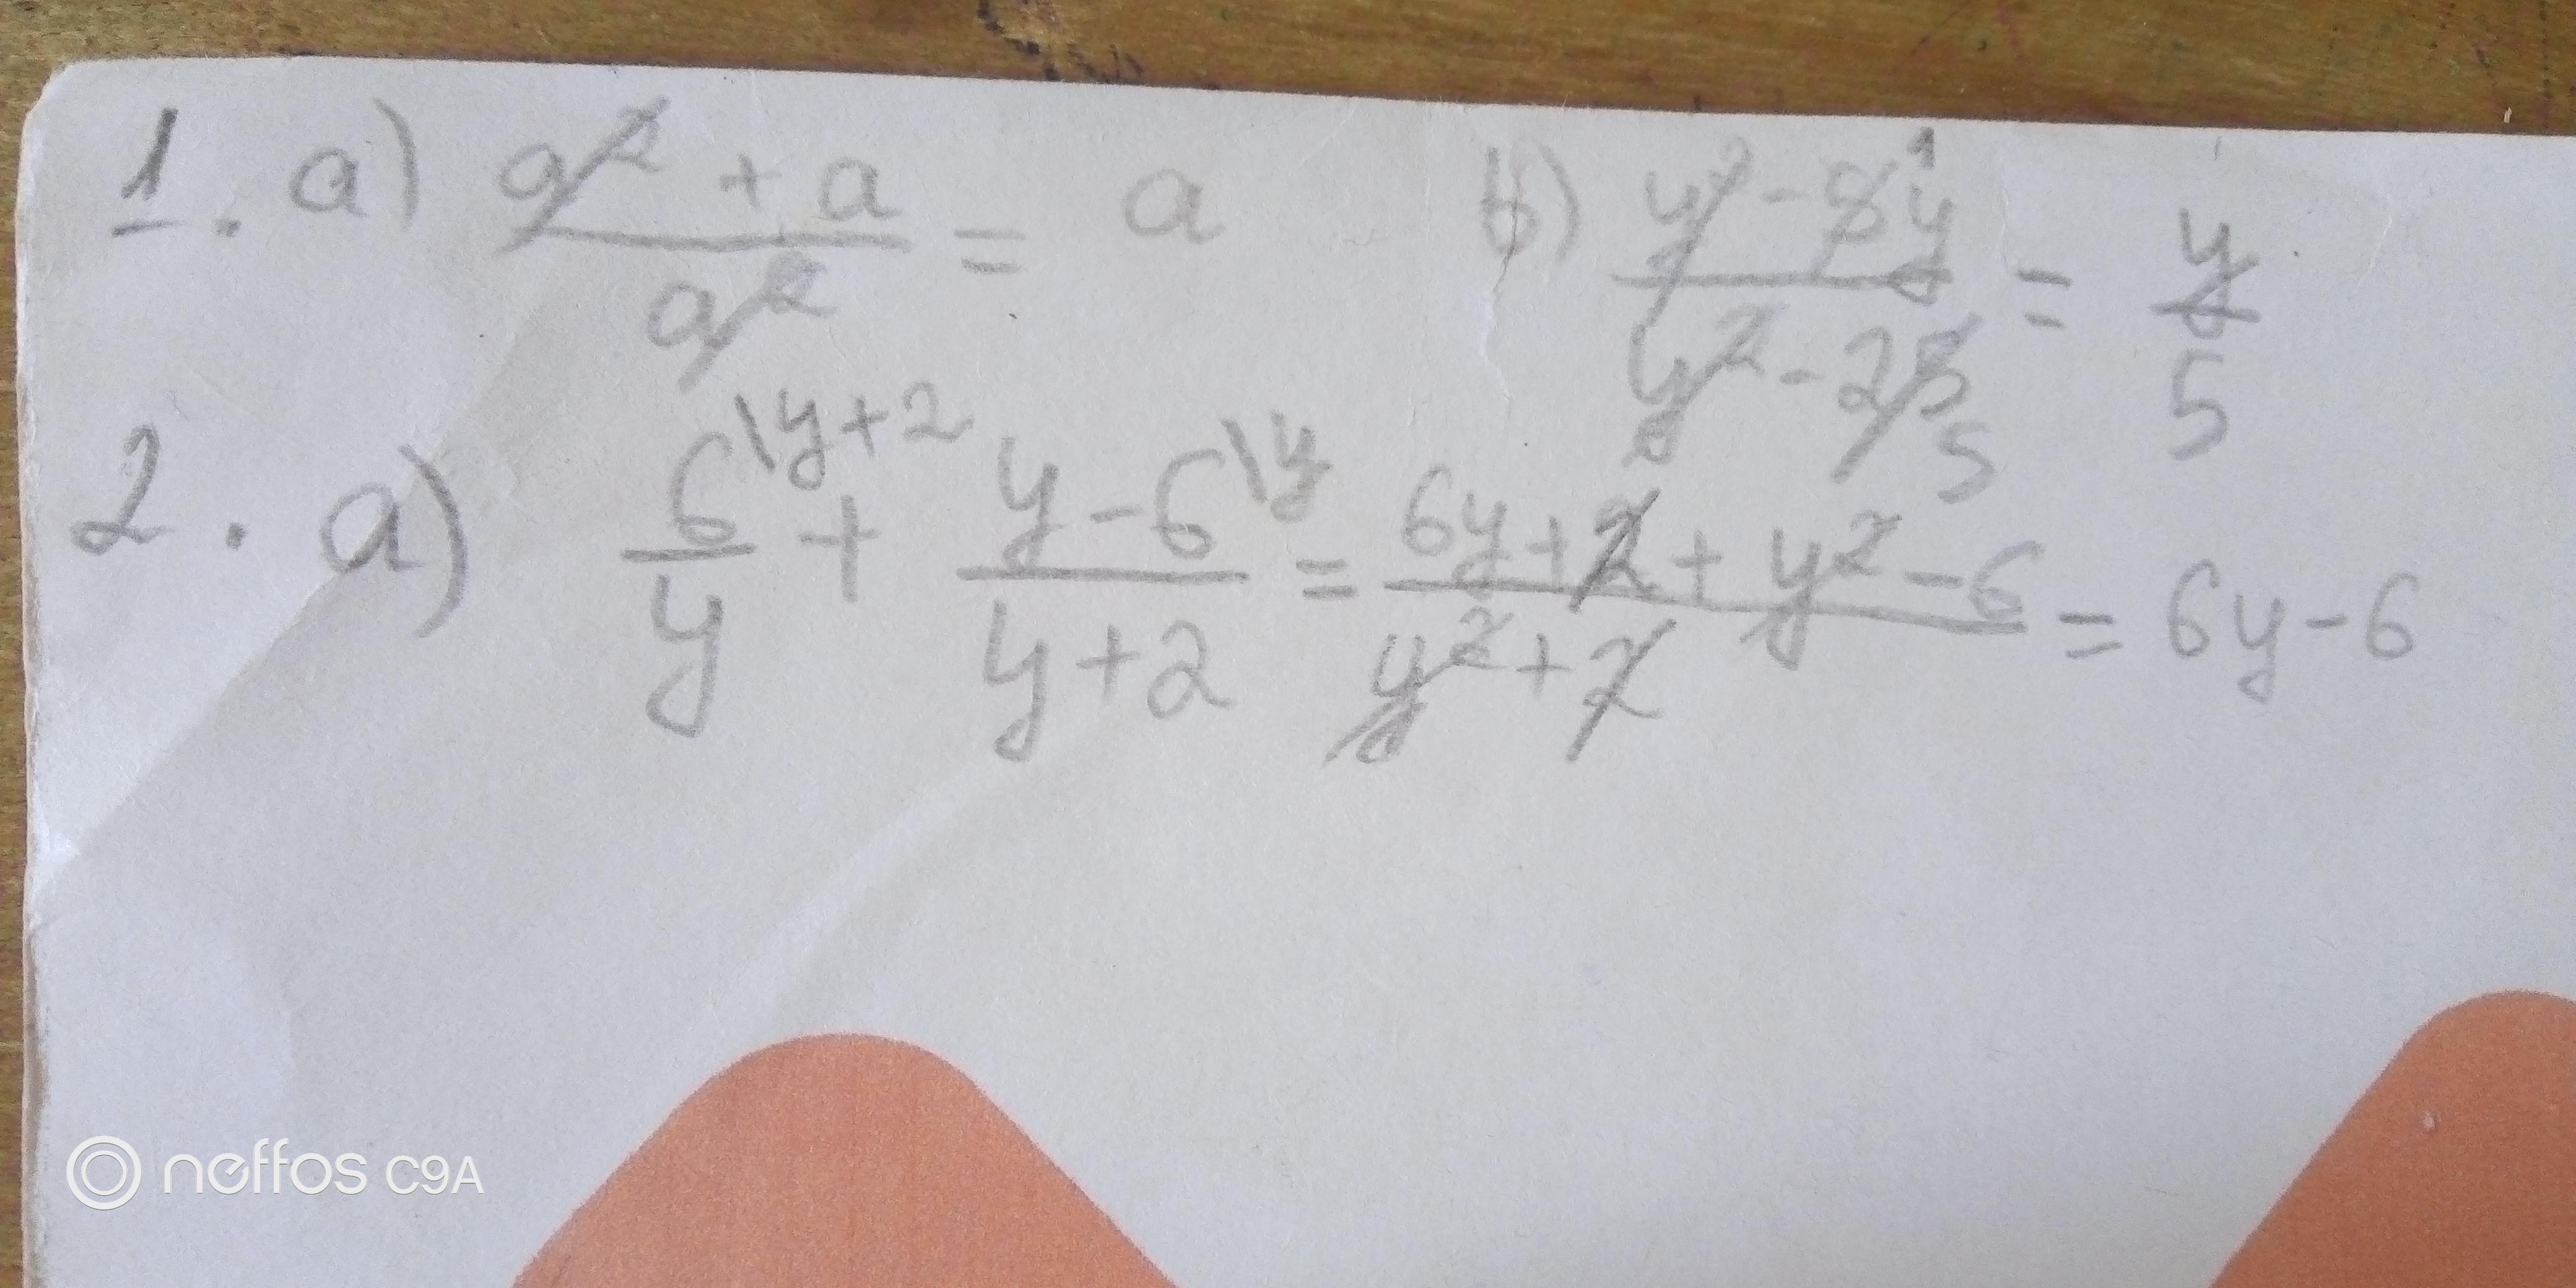 1. a) (a² + a)/a² = a b) (y² - 5y)/(y² - 25) = y/5
1
5
2. a) 6/y \y+2 + (y-6)/(y+2) \y = (6y+2+y²-6)/(y²+2) = 6y-6
neffos C9A